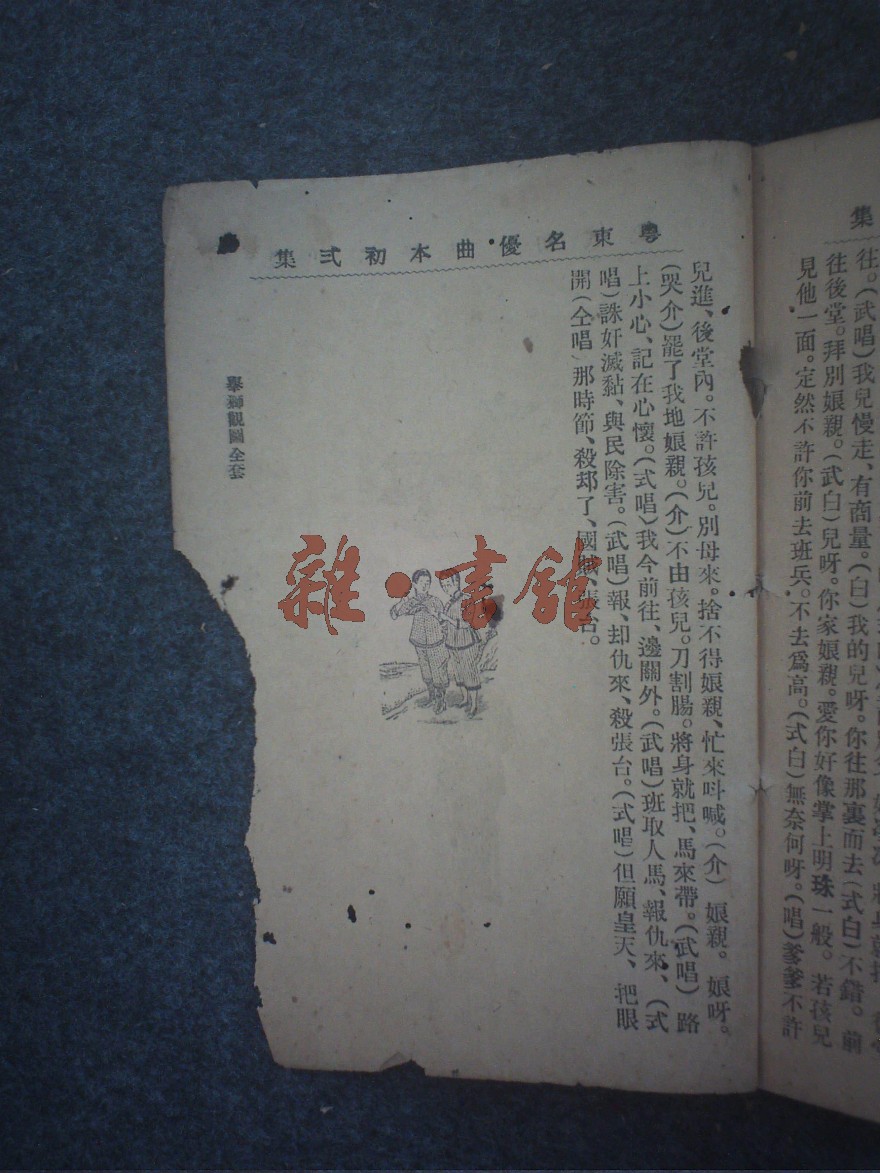 集
往。(武唱)我兒慢走、有商量。(白)我的兒呀。你往那裏而去(式白)不錯。前
往後堂。拜別娘親。(武白)兒呀。你家娘親。愛你好像掌上明珠一般。若孩兒
見他一面。定然不許你前去班兵。不去爲高。(式白)無奈何呀。(唱)爹爹不許
粵東名優曲本初弍集
兒進、後堂內。不許孩兒。別母來。捨不得娘親、忙來呌喊。(介)娘親。娘呀。
(哭介)罷了我地娘親。(介)不由孩兒。刀割腸。將身就把、馬來帶。(武唱)路
上小心、記在心懷。(式唱)我今前往、邊關外。(武唱)班取人馬、報仇來、(式
唱)誅奸滅黏、與民除害。(武唱)報、却仇來、殺張台。(式唱)但願皇天、把眼
開(仝唱)那時節、殺却了、國賊、張台。
舉獅觀圖全套
雜·書舘